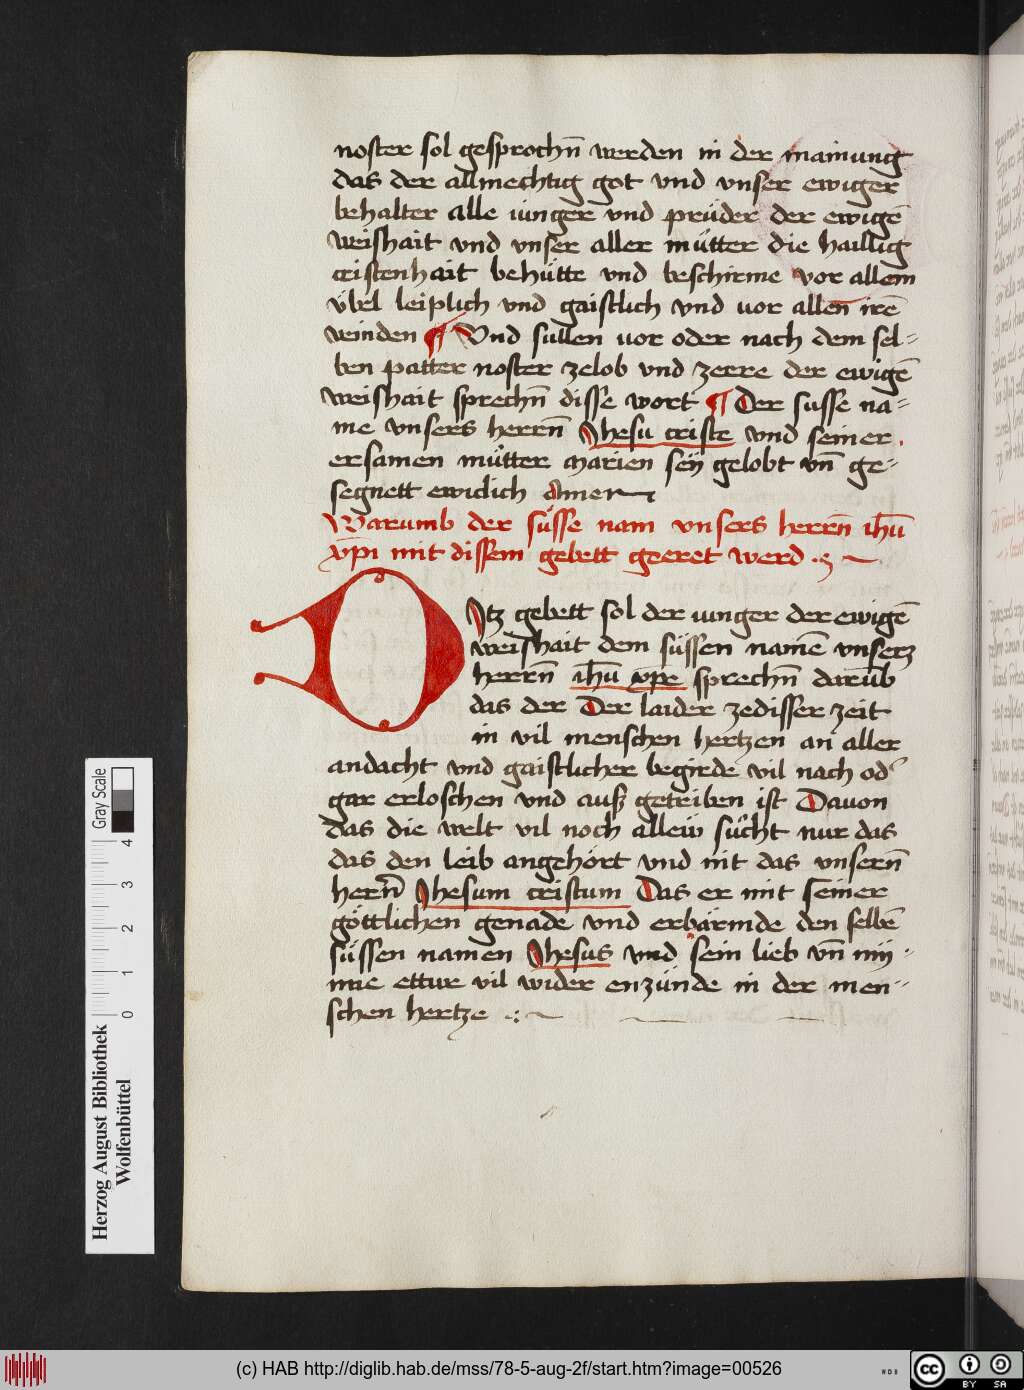 noster sol gesprochn̄ werden in der mainung
das der allmechtig got vnd vnser ewiger
behalter alle iúnger vnd prüder der ewigē
weishait vnd vnser aller mütter die haillig
cristenhait behütte vnd beschirme vor allem
vbel leiplich vnd gaistlich vnd uor allen̄ irē
veinden ¶ Vnd sullen uor oder nach dem sel-
ben patter noster zelob vnd zerre der ewigē
weishait sprechn̄ disse wort ¶ Der susse na-
me vnsers herrn̄ Jhesu criste vnd seiner
ersamen mütter marien seÿ gelobt vn̄ ge-
segnett ewiclich Amen
Warumb der süsse nam vnsers herrn̄ ih̄u
xp̄i mit dissem gebett geeret werd
Ditz gebett sol der iunger der ewigē
weishait dem süssen namē vnserz
herrn̄ ih̄u xp̄e sprechn̄ darūb
das der Der laider zedisser zeit
in vil menschen hertzen an aller
andacht vnd gaistlicher begirde vil nach od᾽
gar erloschen vnd ausz getriben ist Dauon
das die welt vil noch allein sücht nur das
das den leib angehört vnd nit das vnsern̄
herrn̄ Jhesum cristum Das er mit seiner
göttlichen genade vnd erbärmde den selbē
süssen namen Jhesus vnd sein lieb vn̄ mÿ-
nne ettwe vil wider enzünde in der men-
schen hertze
Herzog August Bibliothek
Wolfenbüttel
Gray Scale
0 1 2 3 4
(c) HAB http://diglib.hab.de/mss/78-5-aug-2f/start.htm?image=00526
WDB
cc BY SA